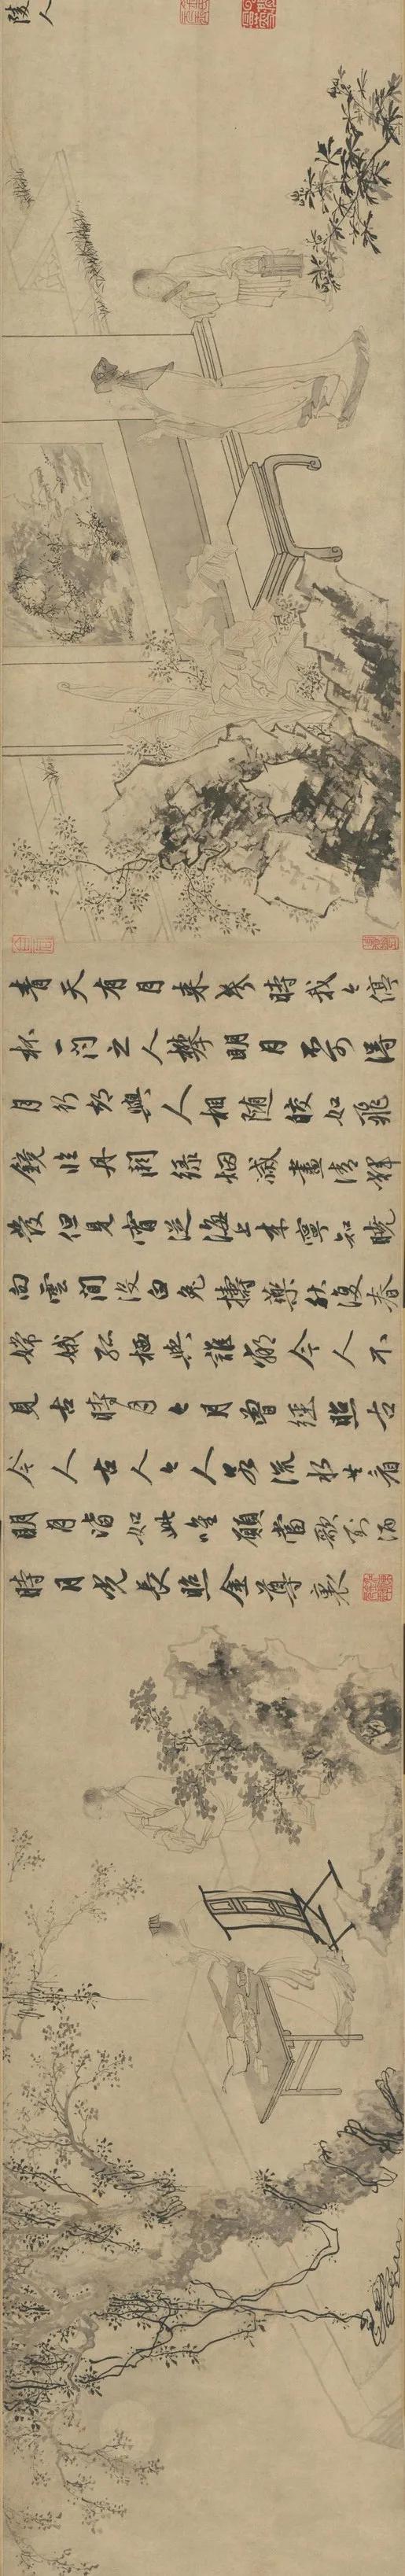 陵人
青天有月來幾時我〻停
杯一問之人攀明月不可得
月行却與人相隨皎如飛
鏡臨丹闕綠烟滅盡清輝
發但見宵從海上來寧知曉
向雲間沒白兔擣藥秋復春
嫦娥孤栖與誰鄰今人不
見古時月〻月曾經照古
今人古人〻人若流水共看
明月皆如此唯願當歌對酒
時月光長照金尊裏